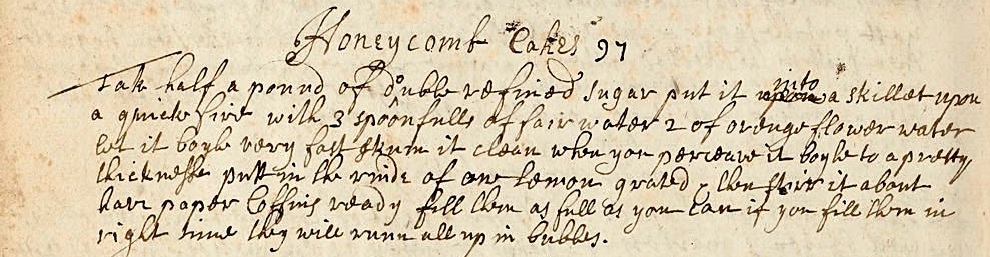 Honeycomb Cakes 97
Tak half a pound of duble refined sugar put it into a skillet upon
a quick fire with 3 spoonfulls of fair water 2 of orenge flower water
let it boyle very fast skum it clean when you perceave it boyle to a pretty
thicknesse putt in the rinde of one Lemon grated, then stirr it about
have paper Coffins ready fill them as full as you Can if you fill them in
right time they will runn all up in bubbes.